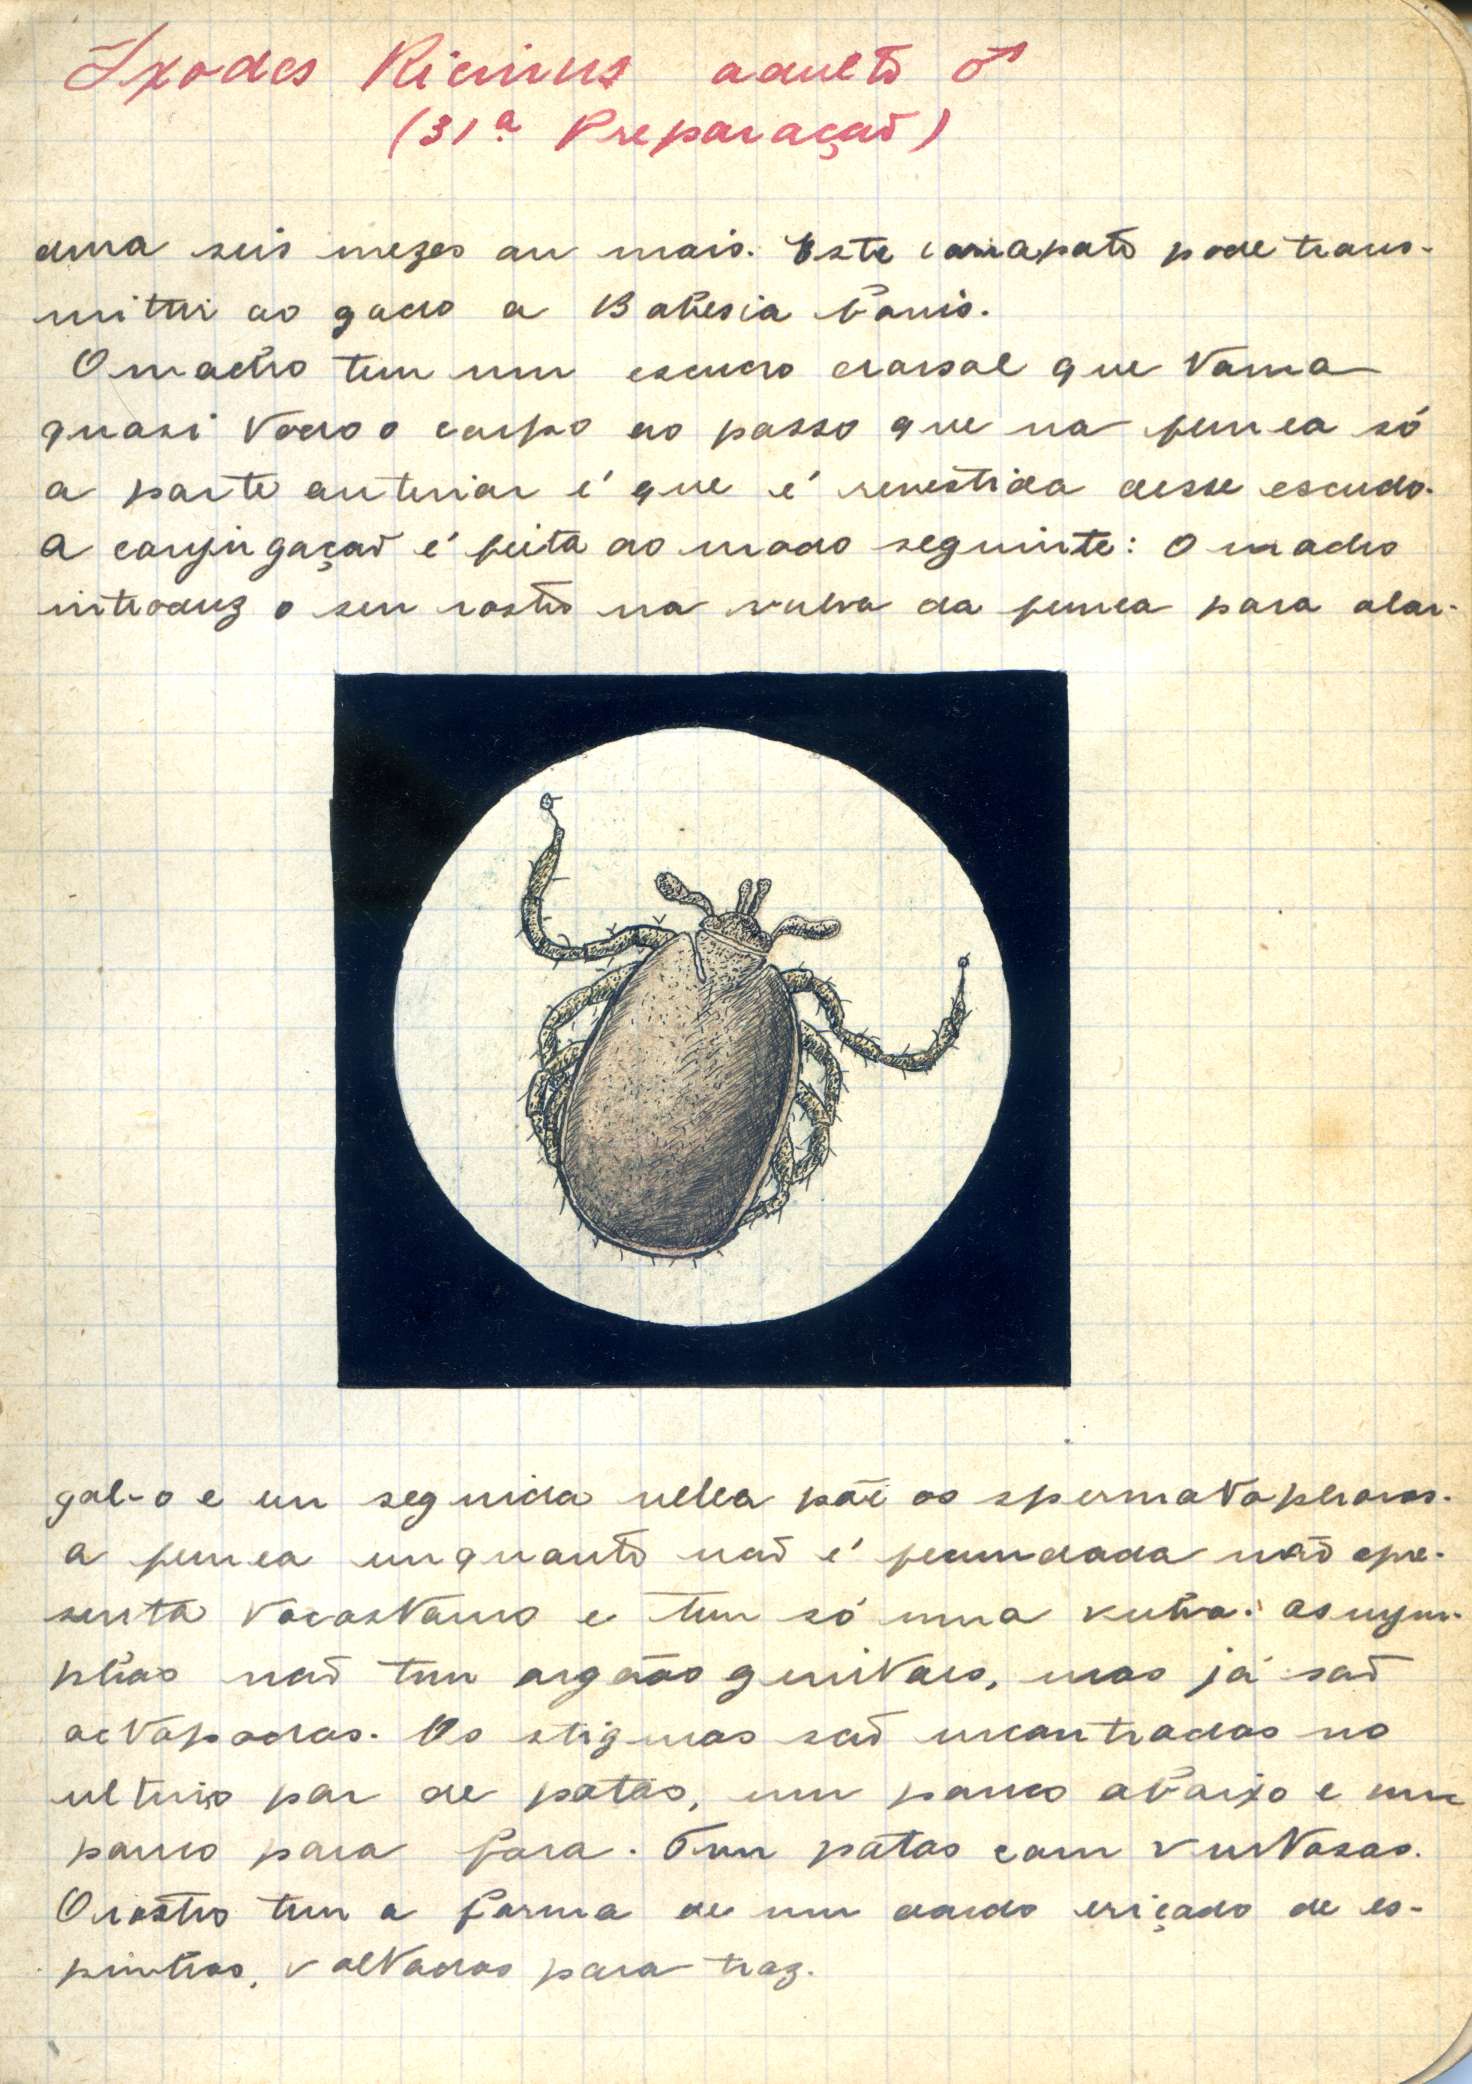 Ixodes Ricinus adulto ♂
(31ª Preparação)
dura seis mezes ou mais. Este carrapato pode trans-
mittir ao gado a Babesia bovis.
O macho tem um escudo dorsal que toma
quasi todo o corpo ao passo que na femea só
a parte anterior é que é revestida desse escudo.
A conjugação é feita do modo seguinte: O macho
introduz o seu rostro na vulva da femea para alar-
gal-o e em seguida nella põe os spermatophoros.
A femea enquanto não é fecundada não apre-
senta tocostomo e tem só uma
As nym-
phas não tem orgãos genitaes, mas já são
octopodas. Os stigmas são encontrados no
ultimo par de patas, um pouco abaixo e um
pouco para fora. Tem patas com ventosas.
O rostro tem a forma de um dardo eriçado de es-
pinhos, voltados para traz.